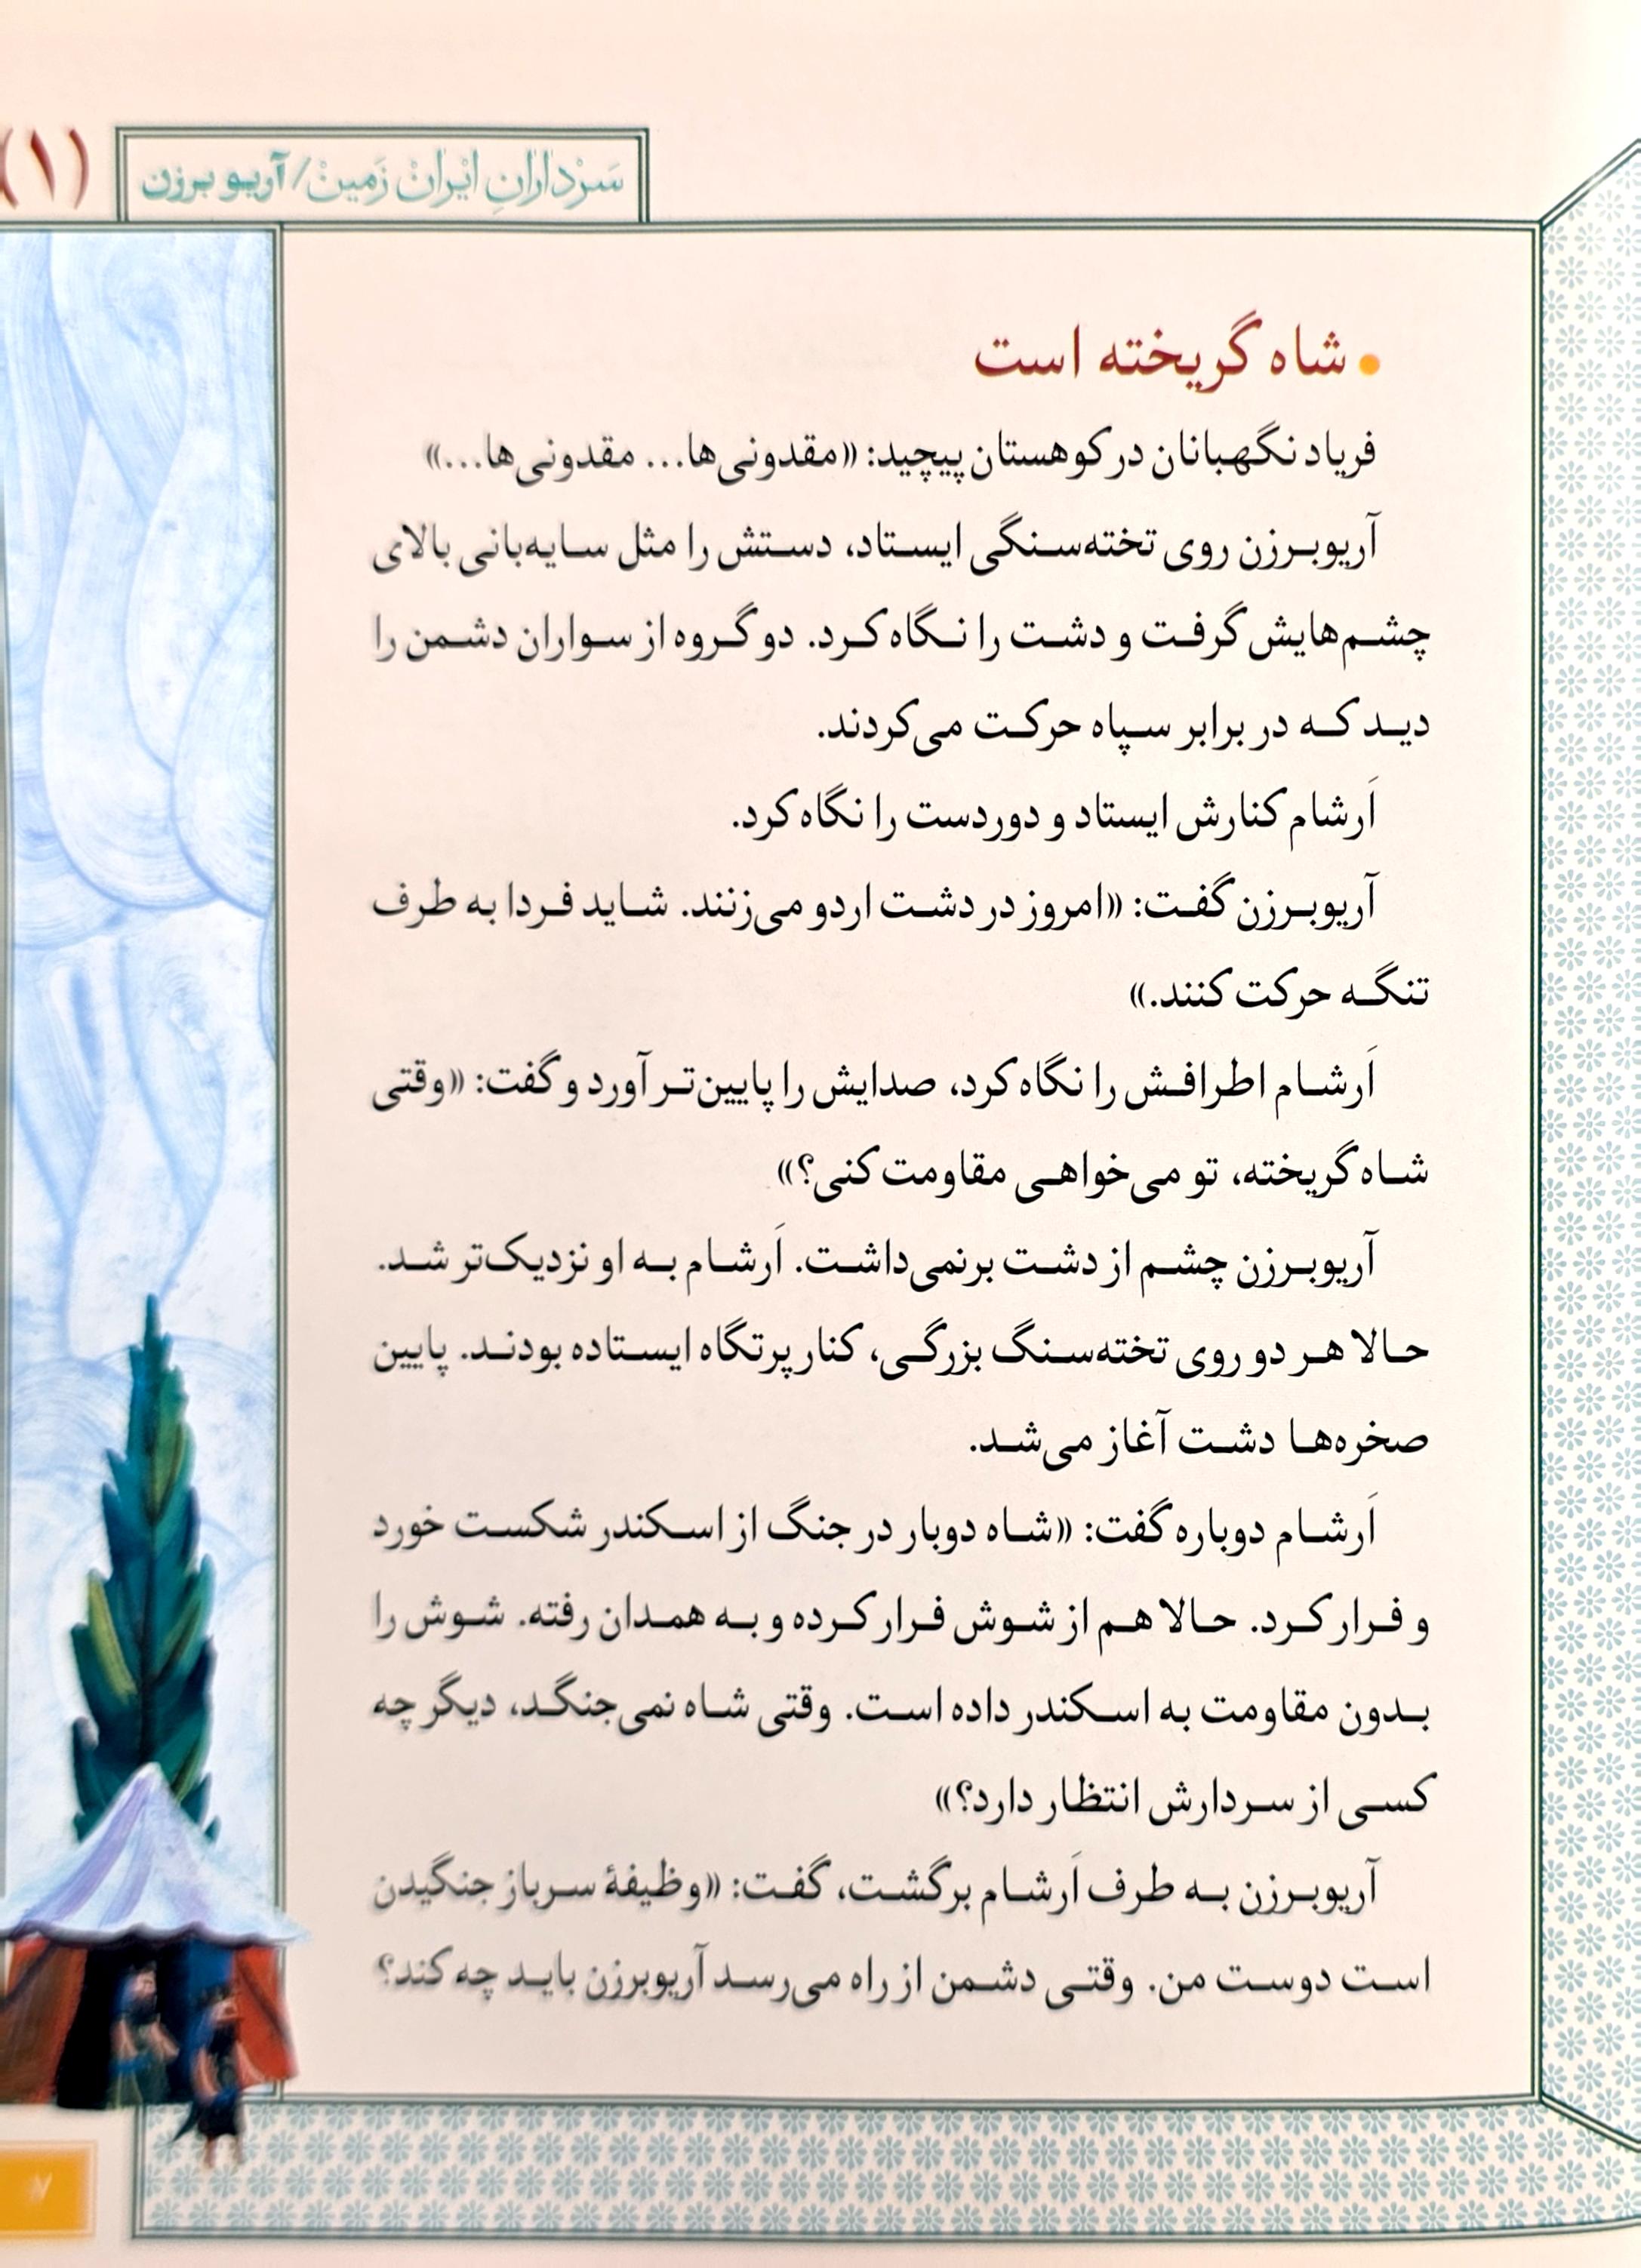 سَرْدارانِ ایْرانْ زَمین/آریو برزن
(۱)
• شاه گریخته است
فریاد نگهبانان در کوهستان پیچید: «مقدونی‌ها... مقدونی‌ها...»
آریوبـرزن روی تخته‌سـنگی ایسـتاد، دسـتش را مثل سـایه‌بانی بالای
چشـم‌هایش گرفـت و دشـت را نـگاه کـرد. دو گـروه از سـواران دشـمن را
دیـد کـه در برابر سـپاه حرکـت می‌کردند.
اَرشام کنارش ایستاد و دوردست را نگاه کرد.
آریوبـرزن گفـت: «امروز در دشـت اردو می‌زنند. شـاید فـردا به طرف
تنگـه حرکت کنند.»
اَرشـام اطرافـش را نگاه کرد، صدایش را پایین‌تـر آورد و گفت: «وقتی
شـاه گریخته، تو می‌خواهـی مقاومت کنی؟»
آریوبـرزن چشـم از دشـت برنمی‌داشـت. اَرشـام بـه او نزدیک‌تر شـد.
حـالا هـر دو روی تخته‌سـنگ بزرگـی، کنار پرتگاه ایسـتاده بودنـد. پایین
صخره‌هـا دشـت آغاز می‌شـد.
اَرشـام دوباره گفت: «شـاه دوبار در جنگ از اسـکندر شکسـت خورد
و فـرار کـرد. حـالا هـم از شـوش فـرار کـرده و بـه همـدان رفته. شـوش را
بـدون مقاومت به اسـکندر داده اسـت. وقتی شـاه نمی‌جنگـد، دیگر چه
کسـی از سـردارش انتظار دارد؟»
آریوبـرزن بـه طرف اَرشـام برگشـت، گفـت: «وظیفهٔ سـرباز جنگیدن
اسـت دوسـت من. وقتـی دشـمن از راه می‌رسـد آریوبرزن بایـد چه کند؟
۷